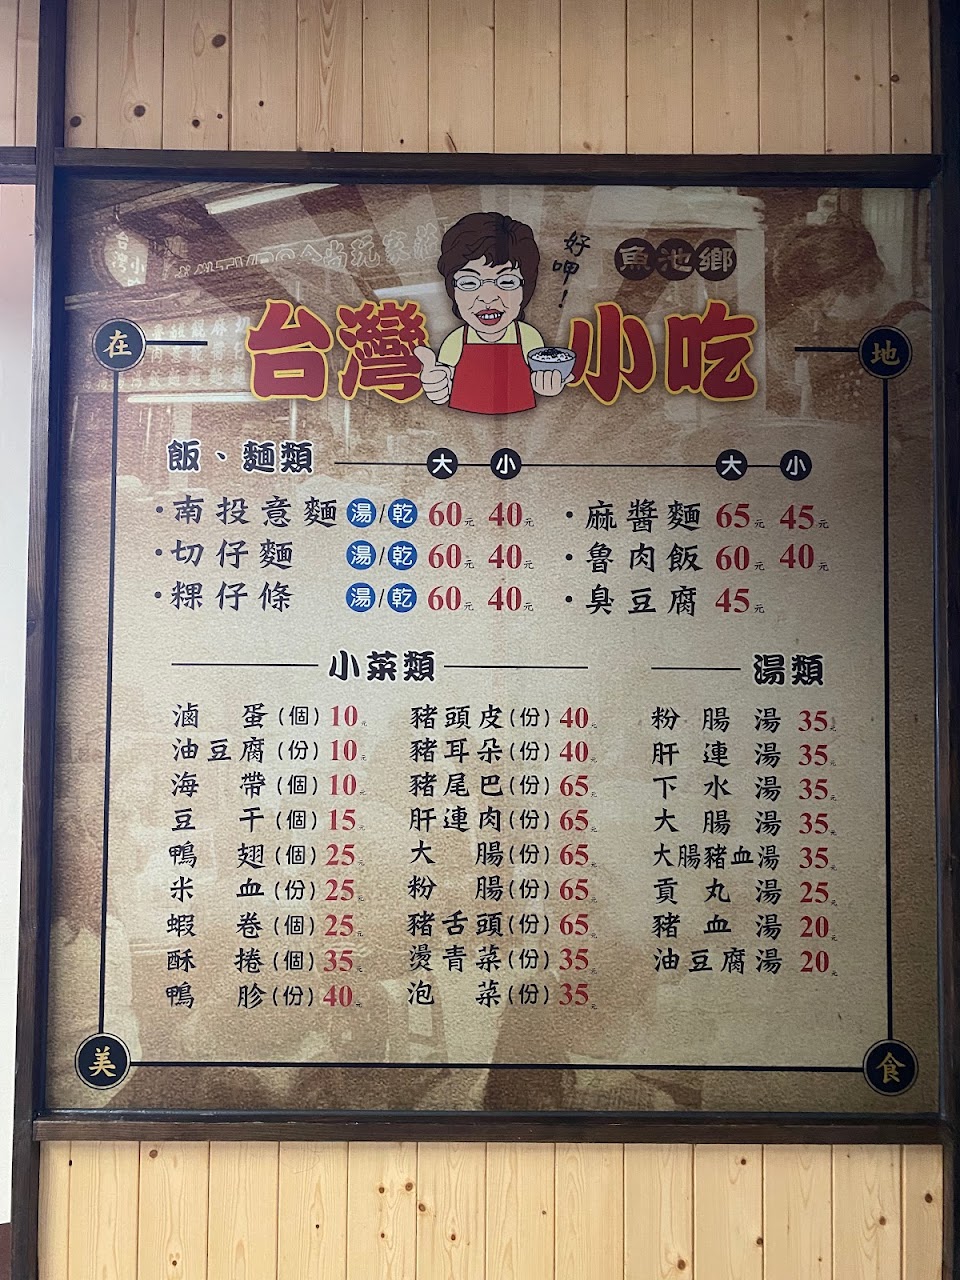 好呷！
魚池鄉
台灣小吃
在地
飯、麵類 大 小 大 小
·南投意麵 湯/乾 60元 40元 ·麻醬麵 65元 45元
·切仔麵 湯/乾 60元 40元 ·魯肉飯 60元 40元
·粿仔條 湯/乾 60元 40元 ·臭豆腐 45元
小菜類 湯類
滷蛋(個) 10元 豬頭皮(份) 40元 粉腸湯 35元
油豆腐(份) 10元 豬耳朵(份) 40元 肝連湯 35元
海帶(個) 10元 豬尾巴(份) 65元 下水湯 35元
豆干(個) 15元 肝連肉(份) 65元 大腸湯 35元
鴨翅(個) 25元 大腸(份) 65元 大腸豬血湯 35元
米血(份) 25元 粉腸(份) 65元 貢丸湯 25元
蝦卷(個) 25元 豬舌頭(份) 65元 豬血湯 20元
酥捲(個) 35元 燙青菜(份) 35元 油豆腐湯 20元
鴨胗(份) 40元 泡菜(份) 35元
美食